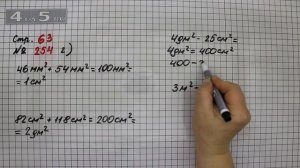 4 5 net
Стр. 63
№ 254 2)
46мм² + 54мм² = 100мм² =
= 1см²
82см² + 118см² = 200см² =
= 2дм²
4дм² - 25см² =
4дм² = 400см²
400 - 2
3м²